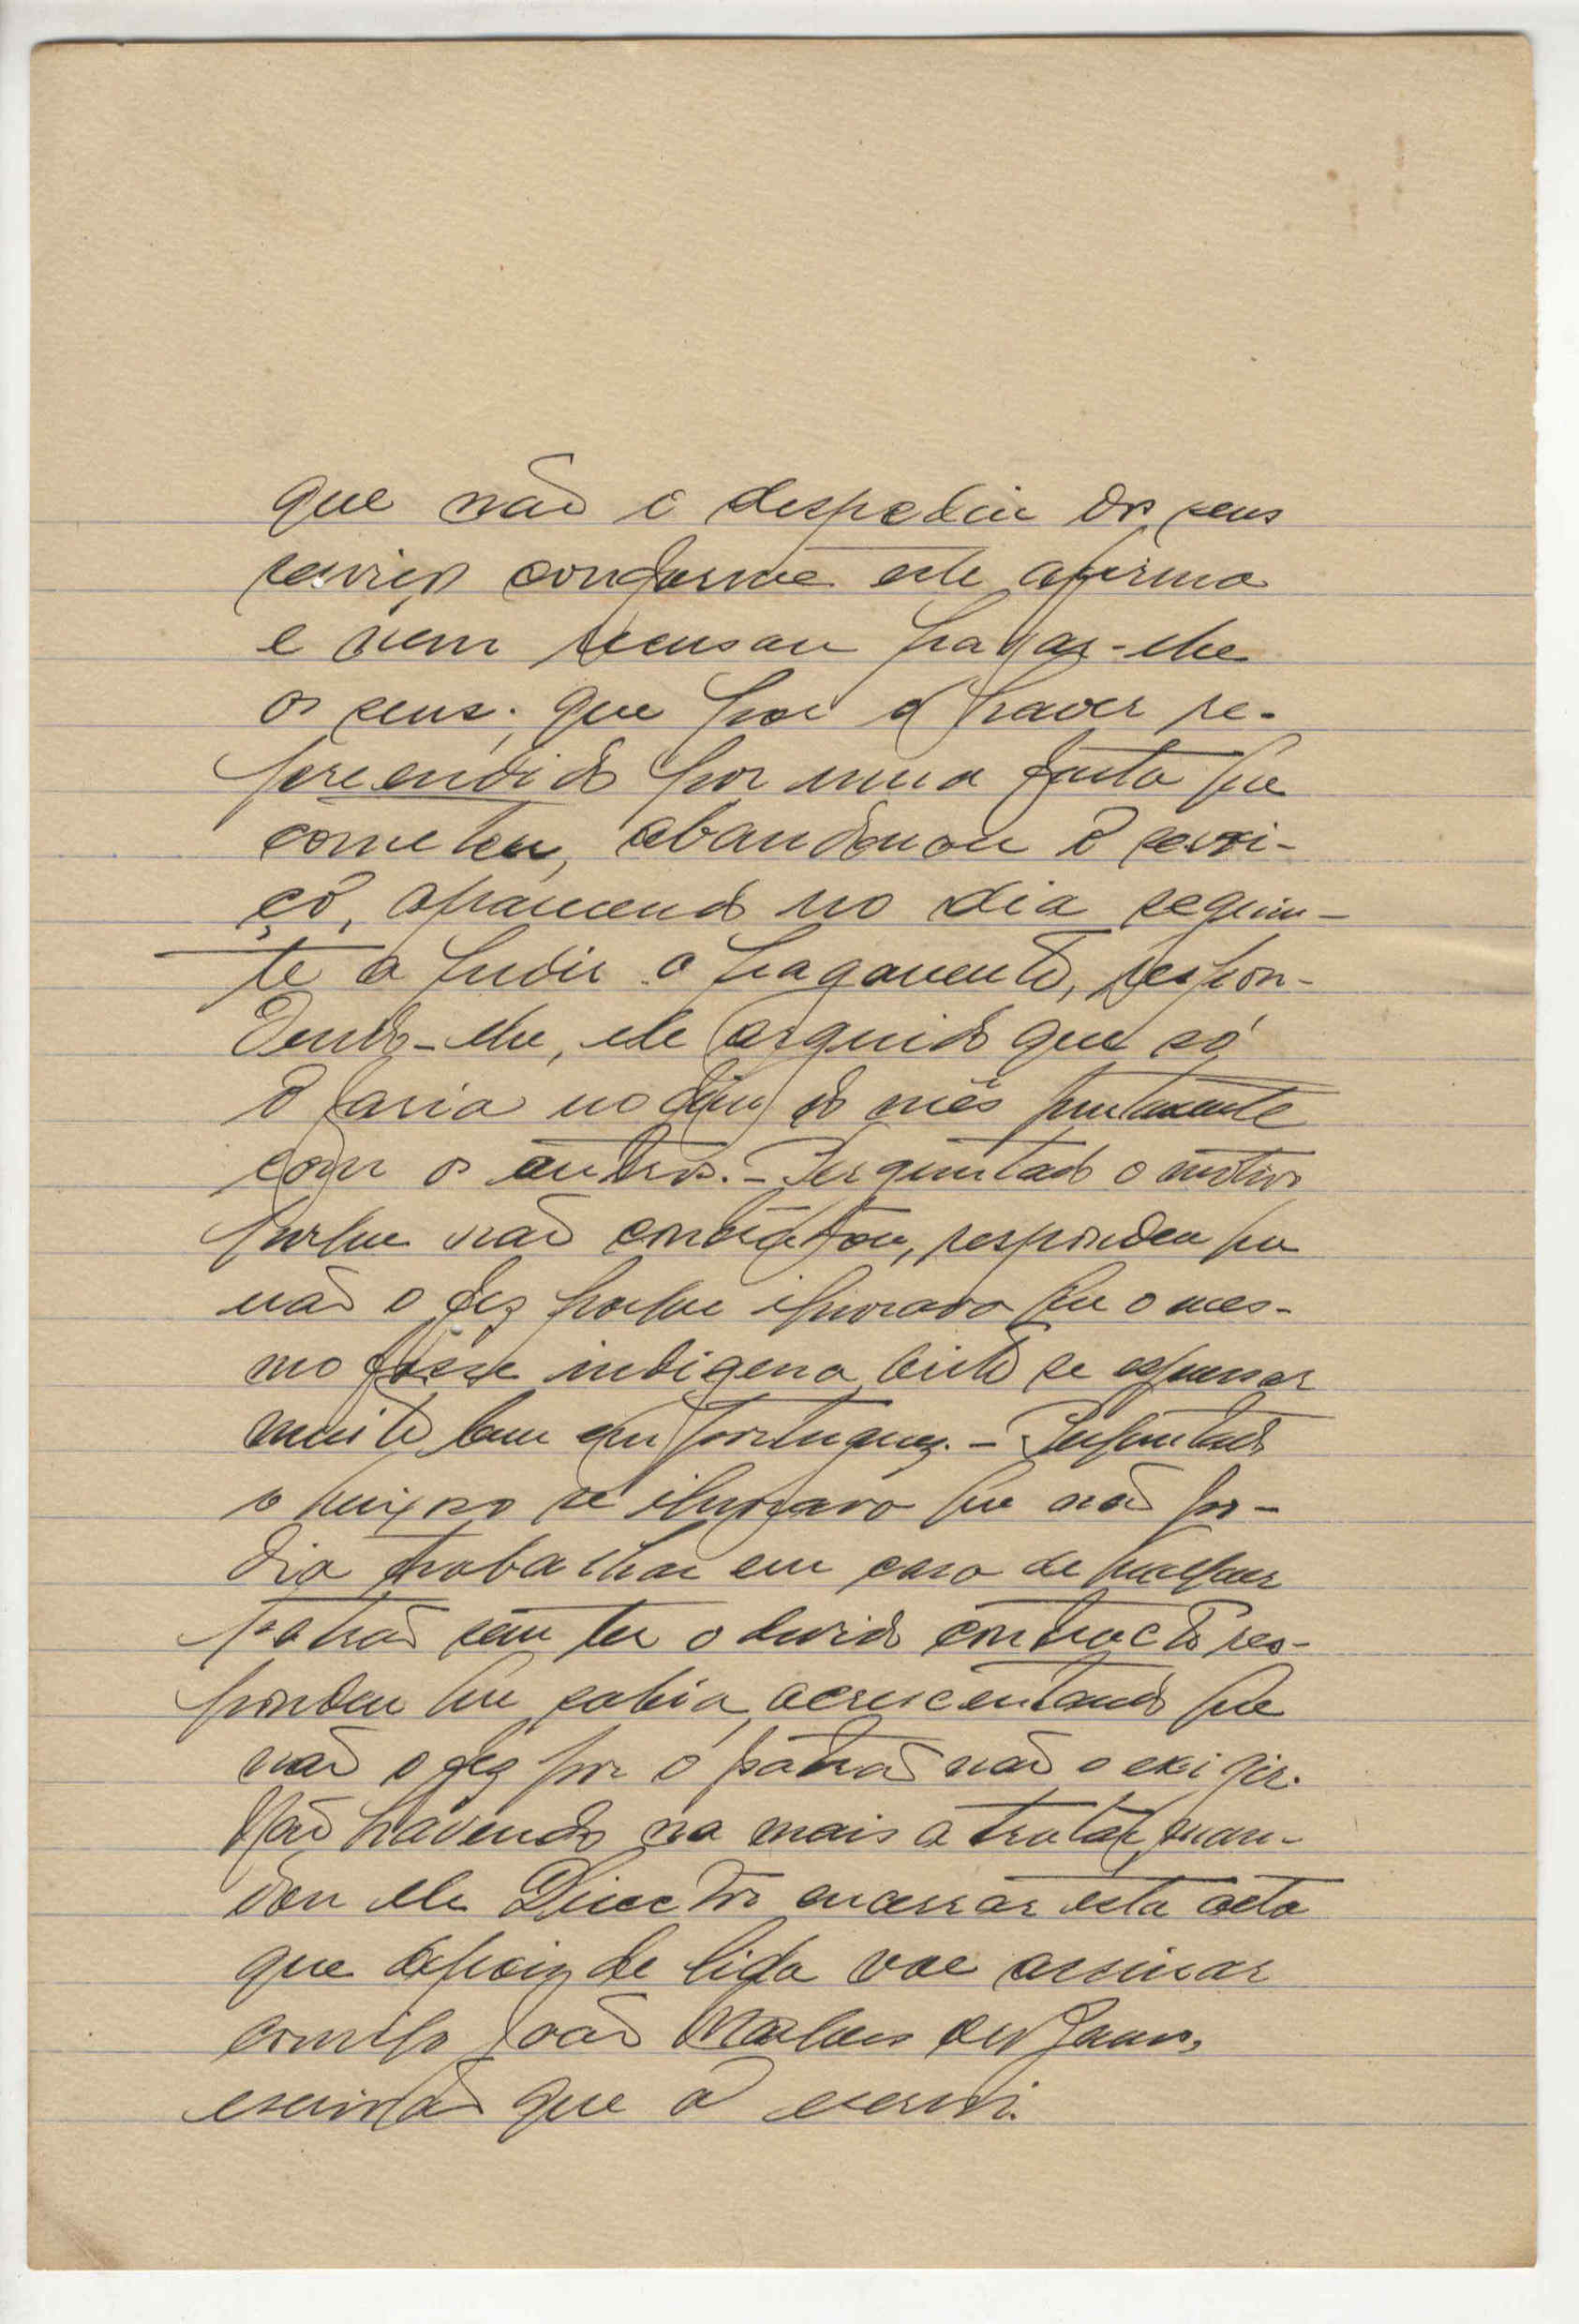 que não o despediu dos seus
serviços conforme este afirma
e nem recusou pagar-lhe
os seus; que por o haver re-
preendido por uma falta que
cometeu, abandonou o servi-
ço, aparecendo no dia seguin-
te a pedir o pagamento, respon-
dendo-lhe, ele arguido que só
o faria no fim do mês juntamente
com os outros. - Perguntado o motivo
porque não contratou, respondeu que
não o fez porque ignorava que o mes-
mo fosse indigena visto se expressar
muito bem em portuguez. - Perguntado
o queixoso se ignorava que não po-
dia trabalhar em casa de qualquer
patrão sem ter o devido contracto res-
pondeu que sabia, acrescentando que
não o fez por o patrão não o exigir.
Não havendo na mais a tratar, man-
dou ele Director encerrar esta acta
que depois de lida vae assinar
comigo João
escrivão que o escrevi.